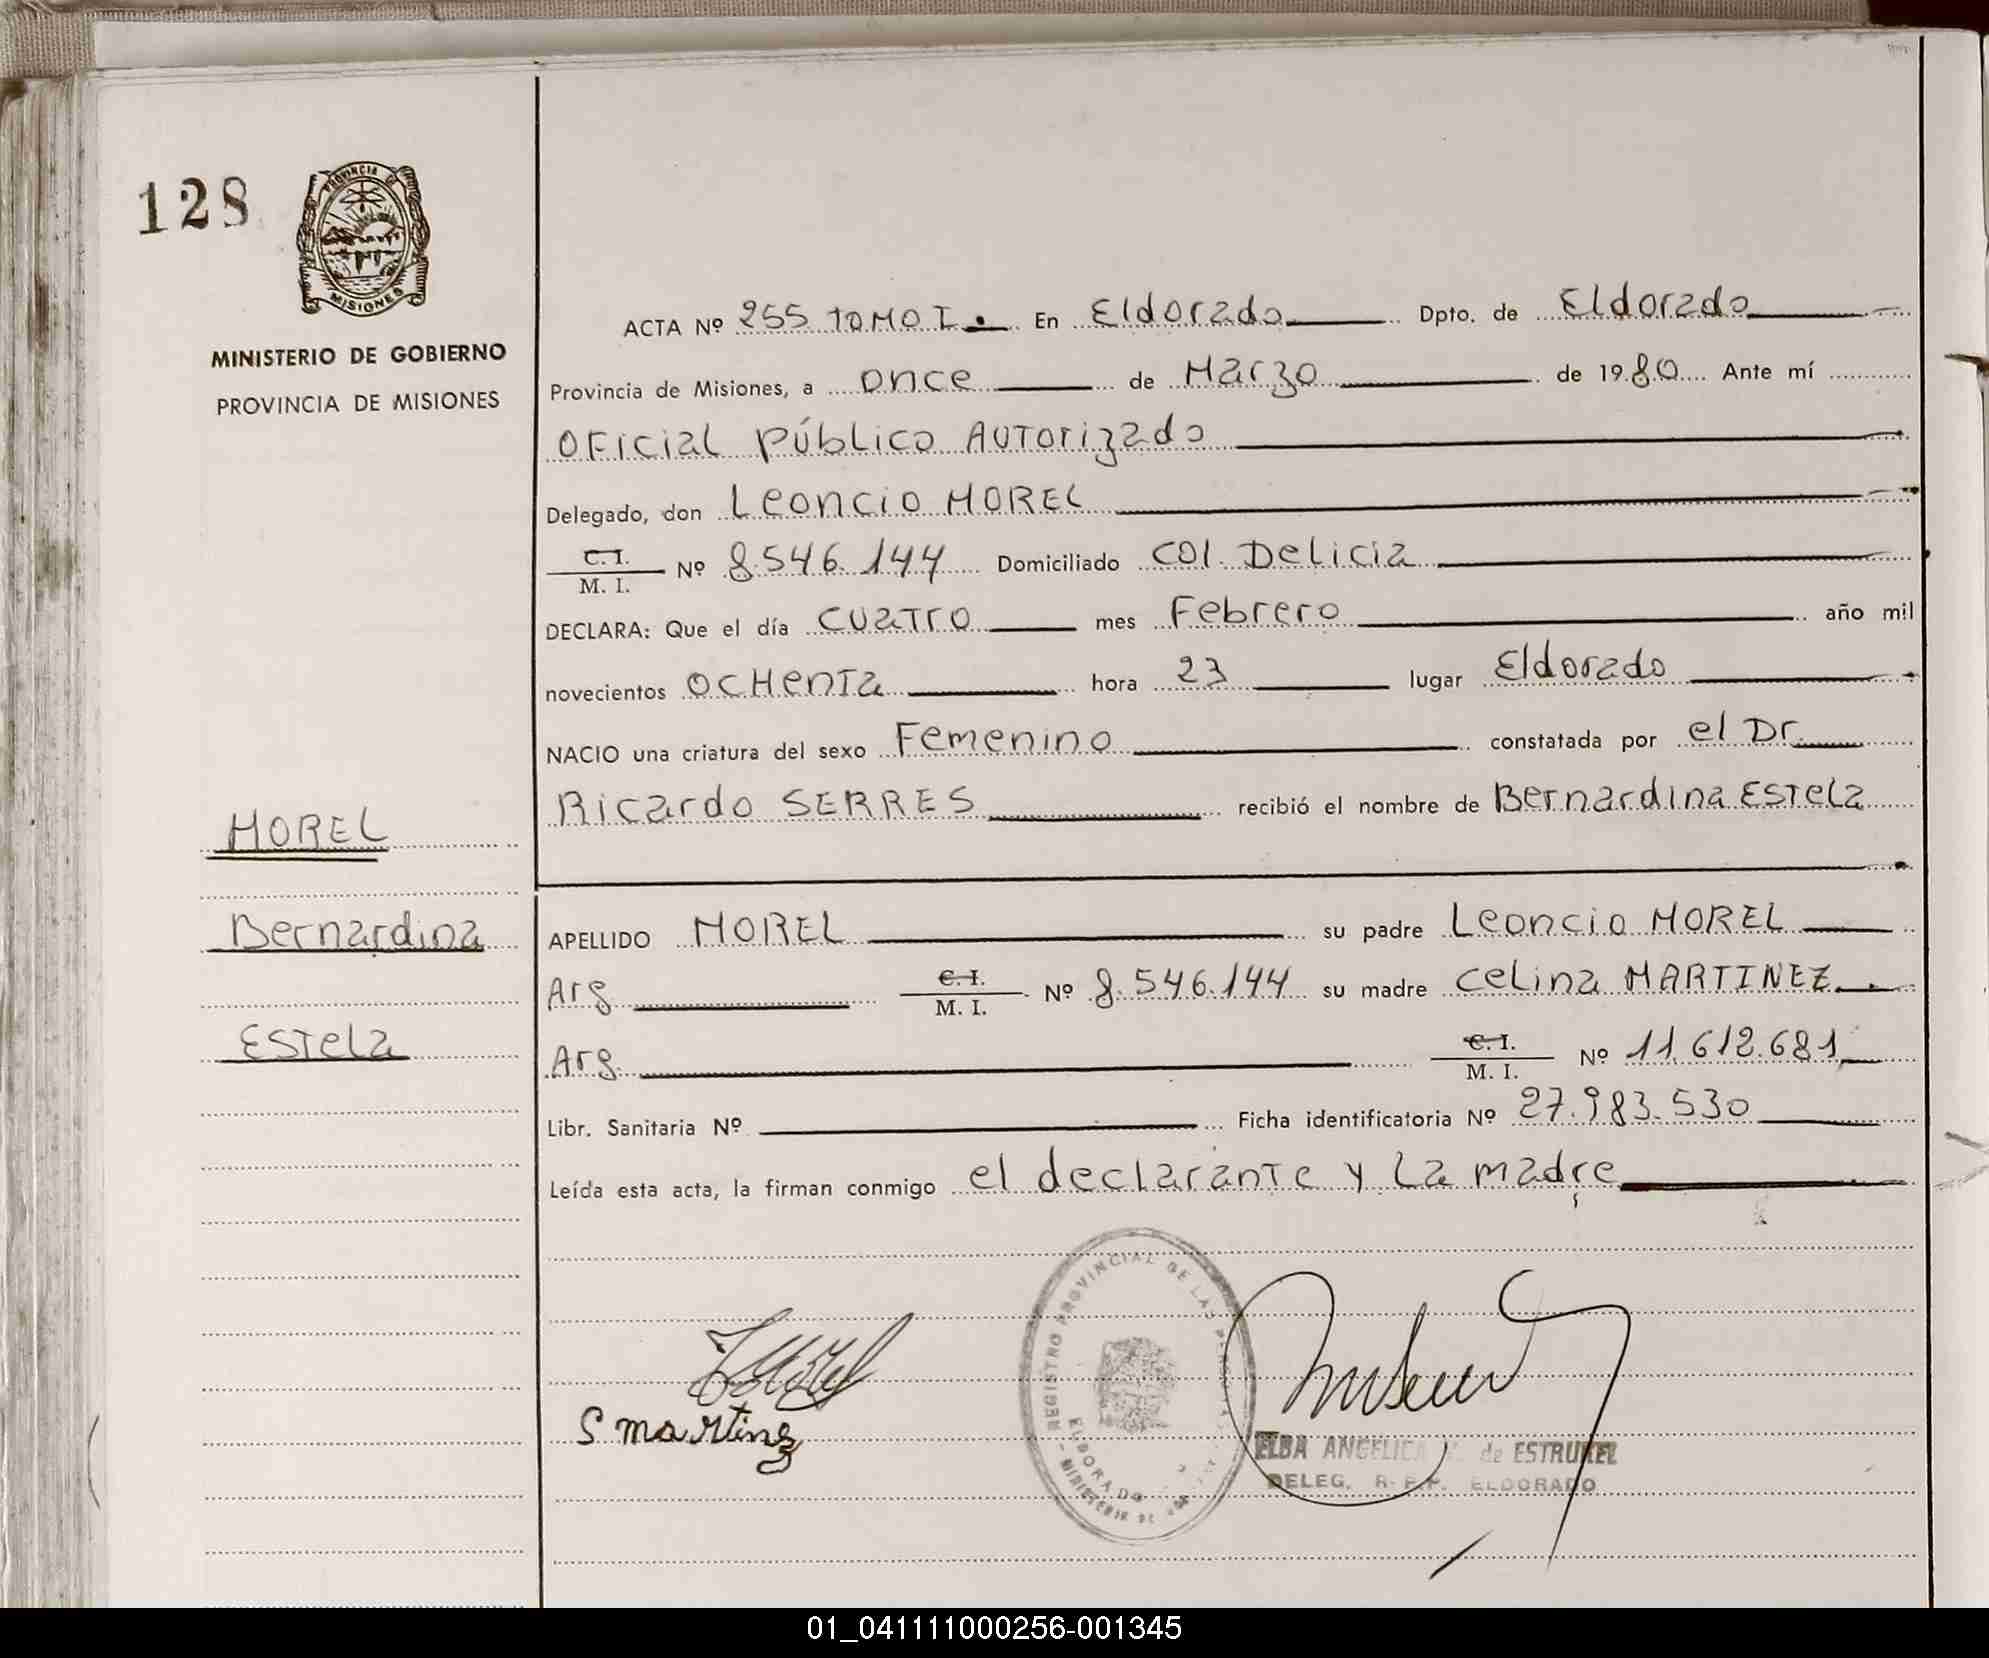 128
PROVINCIA DE
MISIONES
MINISTERIO DE GOBIERNO
PROVINCIA DE MISIONES
MOREL
Bernardina
Estela
ACTA Nº 255 TOMO I. En Eldorado Dpto. de Eldorado
Provincia de Misiones, a once de Marzo de 1980 Ante mí
Oficial Público Autorizado
Delegado, don Leoncio MOREL
C. I.
M. I. Nº 8.546.144 Domiciliado Col. Delicia
DECLARA: Que el día cuatro mes Febrero año mil
novecientos ocHenta hora 23 lugar Eldorado
NACIO una criatura del sexo Femenino constatada por el Dr.
Ricardo SERRES recibió el nombre de Bernardina Estela
APELLIDO MOREL su padre Leoncio MOREL
Arg C. I.
M. I. Nº 8.546.144 su madre Celina MARTINEZ.
Arg. C. I.
M. I. Nº 11.612.681
Libr. Sanitaria Nº Ficha identificatoria Nº 27.983.530
Leída esta acta, la firman conmigo el declarante y la madre
REGISTRO PROVINCIAL DE LAS
ELDORADO
MINISTERIO DE
S martinez
ELBA ANGELICA de ESTRUKEL
DELEG. R. P. P. ELDORADO
01_041111000256-001345